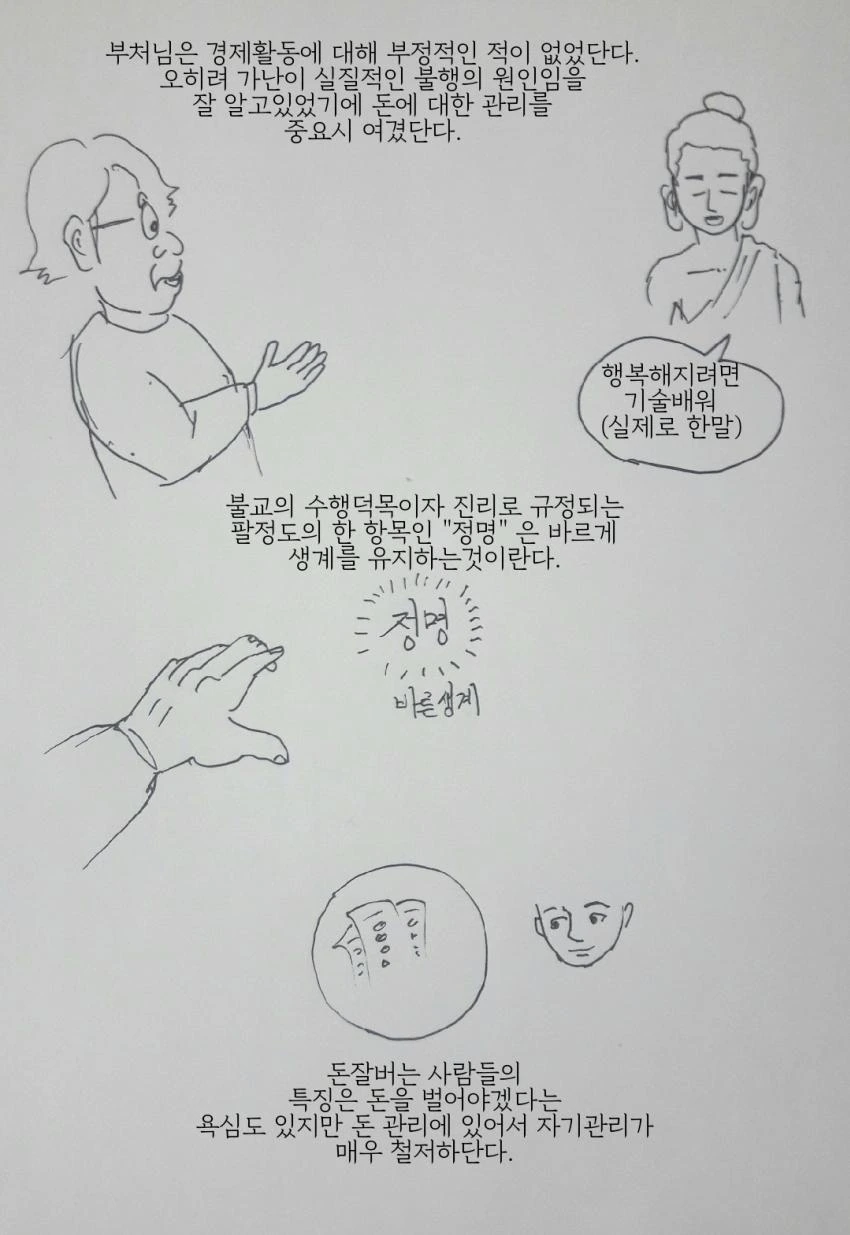 부처님은 경제활동에 대해 부정적인 적이 없었단다.
오히려 가난이 실질적인 불행의 원인임을
잘 알고있었기에 돈에 대한 관리를
중요시 여겼단다.
행복해지려면
기술배워
(실제로 한말)
불교의 수행덕목이자 진리로 규정되는
팔정도의 한 항목인 "정명" 은 바르게
생계를 유지하는것이란다.
정명
바른생계
돈잘버는 사람들의
특징은 돈을 벌어야겠다는
욕심도 있지만 돈 관리에 있어서 자기관리가
매우 철저하단다.